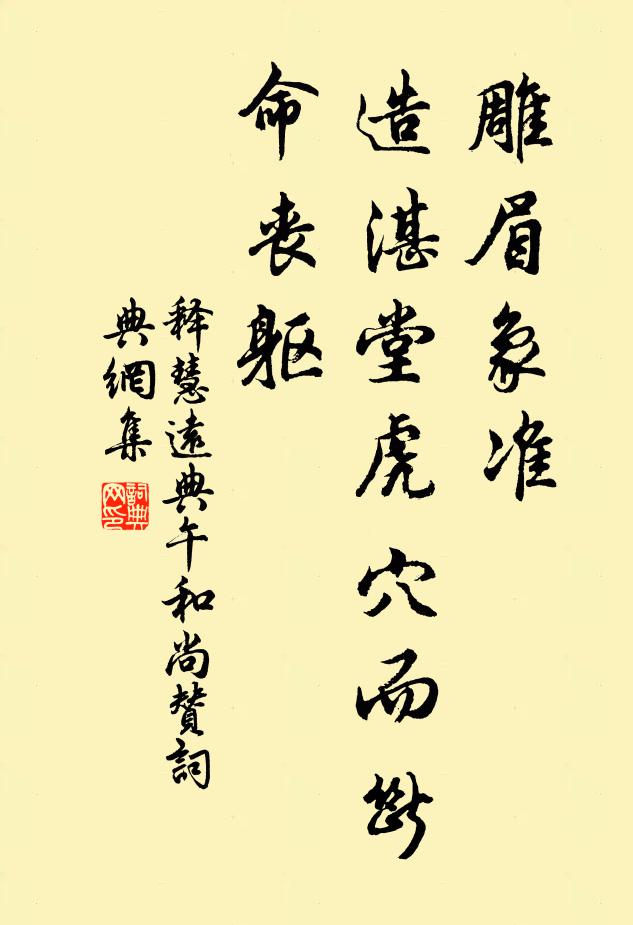 雕眉象准
造湛堂虎穴而斷
命丧躯
释慧遠典午和尚賛詞
典網集
詞典網印